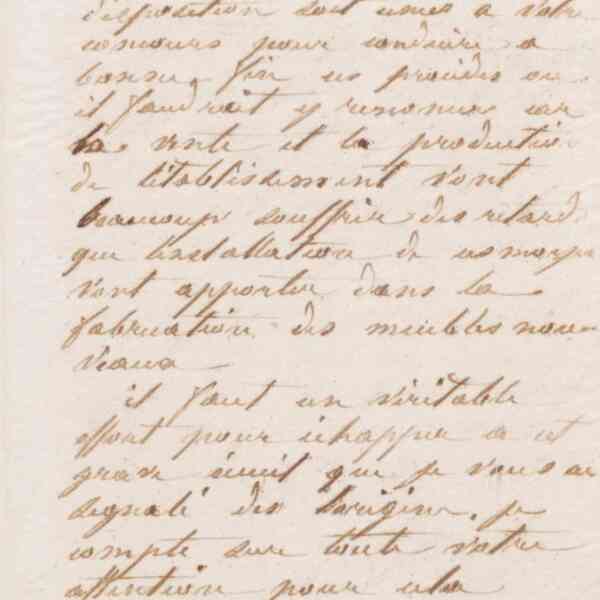 disposition soit unies a votre
concours pour conduire a
bonne fin ces procédés ou
il faudrait y renoncer car
la vente et la production
de l'établissement vont
beaucoup souffrir des retards
que l'installation de ces moyens
vont apporter dans la
fabrication des meubles nou-
veaux
il faut un véritable
effort pour échapper a cet
grave écueil que je vous ai
signalé dès l'origine. je
compte sur toute votre
attention pour cela